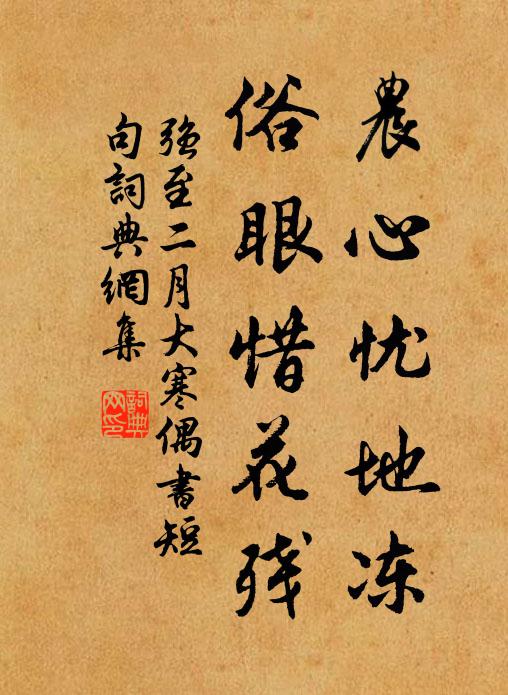 農心忧地冻
俗眼惜花残
强至二月大寒偶書短
句詞典網集
詞典
网印